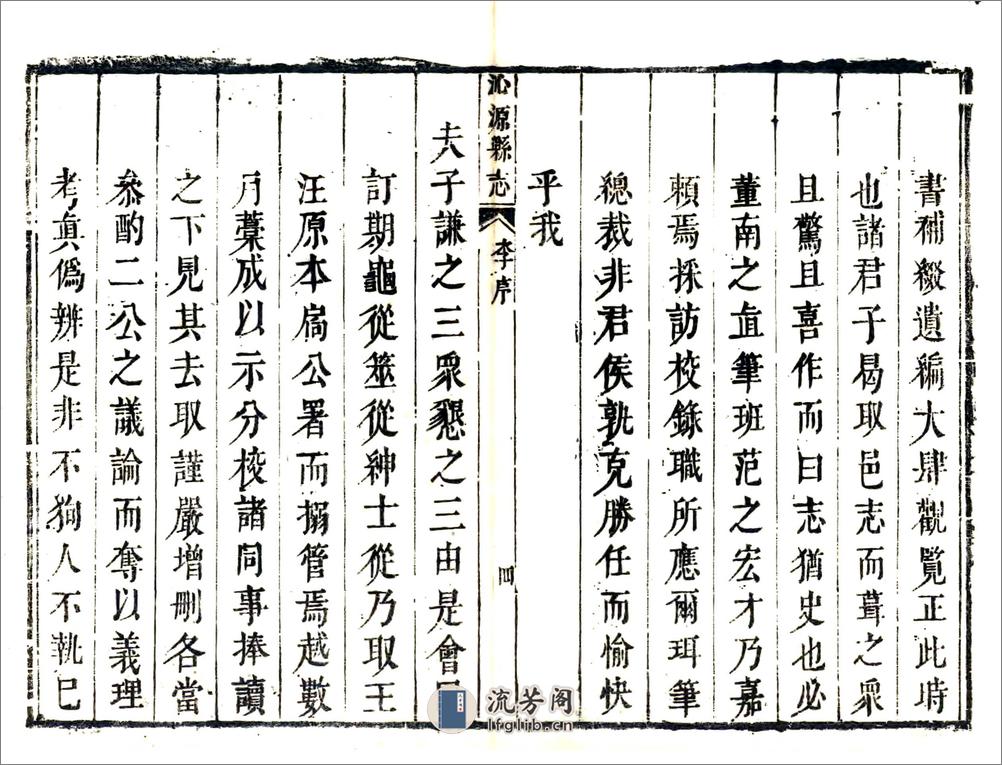 書補綴遺編大肆觀覽正此時
也諸君子曷取邑志而葺之衆
且驚且喜作而曰志猶史也必
董南之直筆班范之宏才乃嘉
賴焉採訪校錄職所應爾珥筆
總裁非君侯孰克勝任而愉快
乎我
沁源縣志 李序 四
夫子謙之三衆懇之三由是會
訂期龜從筮從紳士從乃取王
汪原本扃公署而搦管焉越數
月藁成以示分校諸同事捧讀
之下見其去取謹嚴增刪各當
叅酌二公之議論而奪以義理
考眞僞辨是非不狥人不執已
流芳阁
lfglib.cn